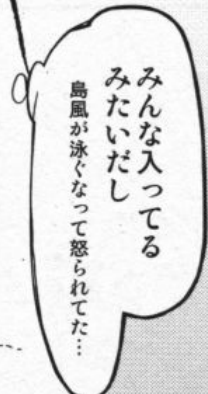 みんな入ってる
みたいだし
島風が泳ぐなって怒られてた…